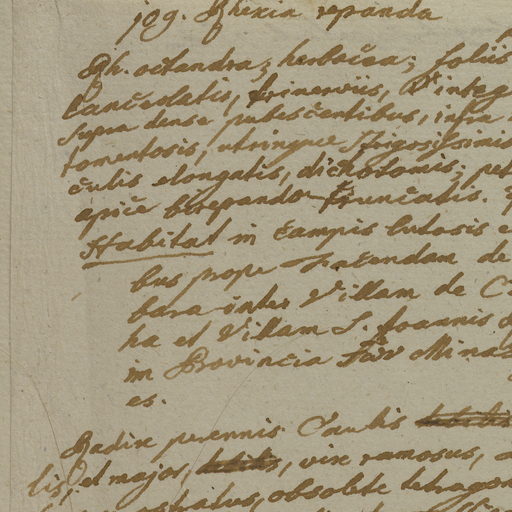 jog. Rhexia repanda
Rh. octandra; herbacea; foliis
lanceolatis, trinerviis, integ
supra dense pubescentibus, infra
tomentosis, utrinque rugosissimis
culis elongatis, dichotomis; pet
apice truncatis.
Habitat in campis lutosis e
bus prope Fazendam de
bara inter Villam de C
ha et Villam S. Joannis
in Provincia Minas
es.
Radix perennis. Caulis
lis, et major, vix ramosus,
obsolete tetragon